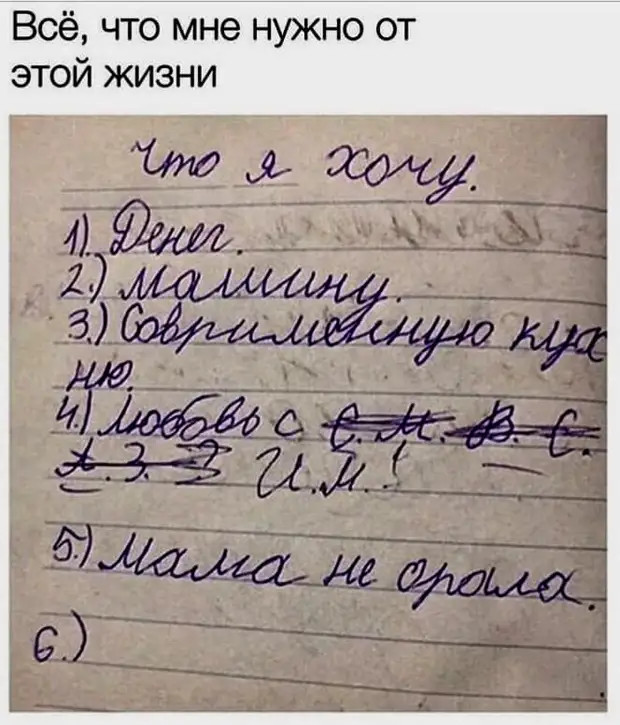 Всё, что мне нужно от
этой жизни
Что я хочу.
1). Денег.
2.) машину.
3.) Совримённую кух
ню.
4.) любовь с С. М. В. С.
А. З. З И.М.!
5.) Мама не орала.
6.)